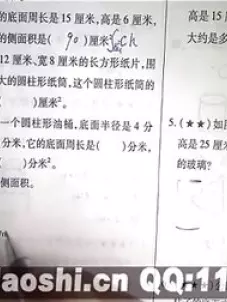 的底面周长是 15 厘米,高是 6 厘米,
的侧面积是( 90 )厘米
12 厘米、宽 8 厘米的长方形纸片,围
大的圆柱形纸筒,这个圆柱形纸筒的
( )厘米²。
一个圆柱形油桶,底面半径是 4 分
分米,它的底面周长是( )分米,
)分米²。
侧面积。
高是 15
大约是多
5. (★★)如
高是 25 厘米
的玻璃?
aoshi.cn QQ:11